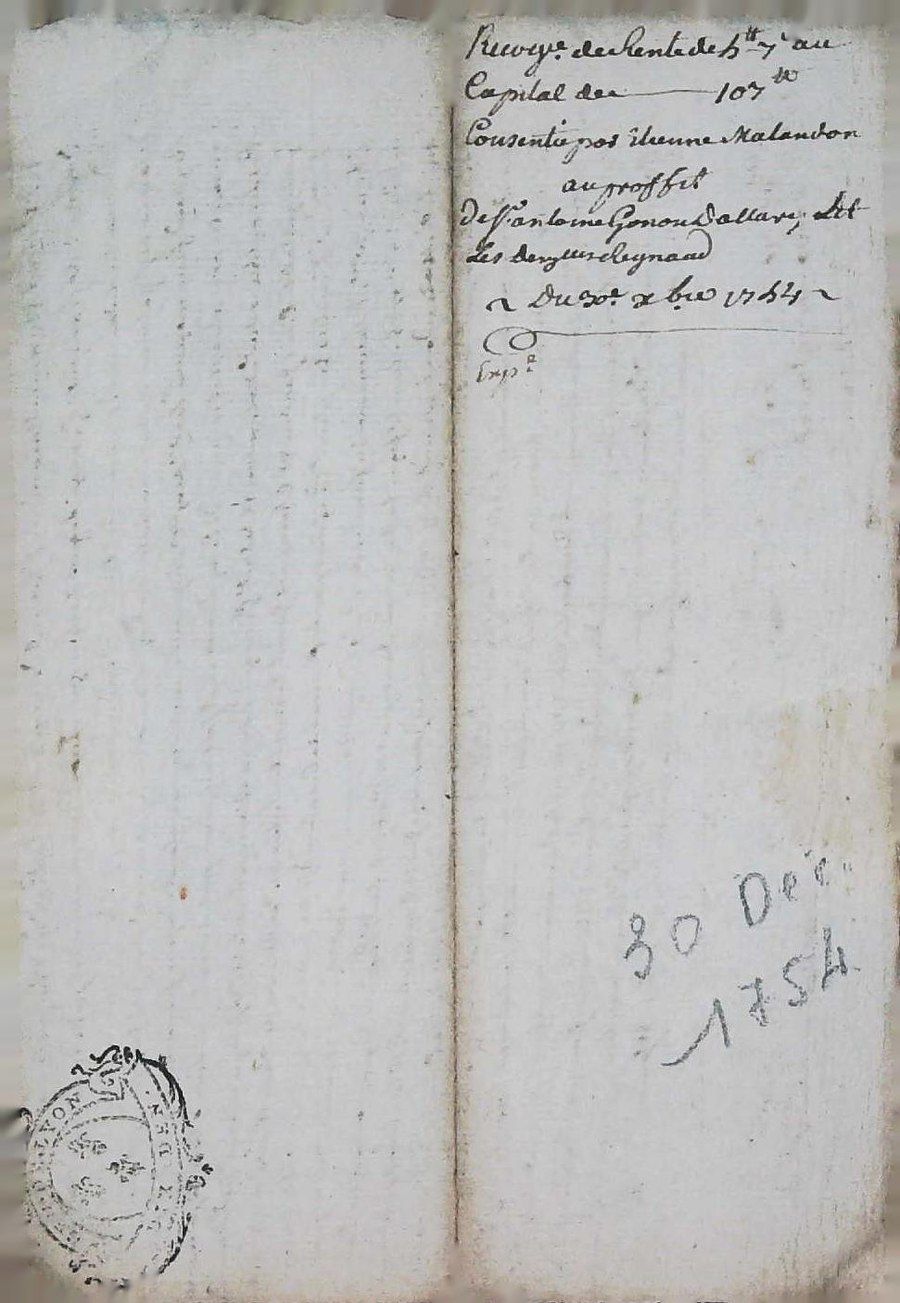 Recoge. de Rente de 5tt 7s au
Capital de 107tt
Consentie par Etienne Matandon
au proffit
de Sr. antoine Gonon Dallary, Let
Les demlles Reynaud
~ Du 30e xbre 1754 ~
Expe
30 Déc.
1754
LYON
GEN DEN